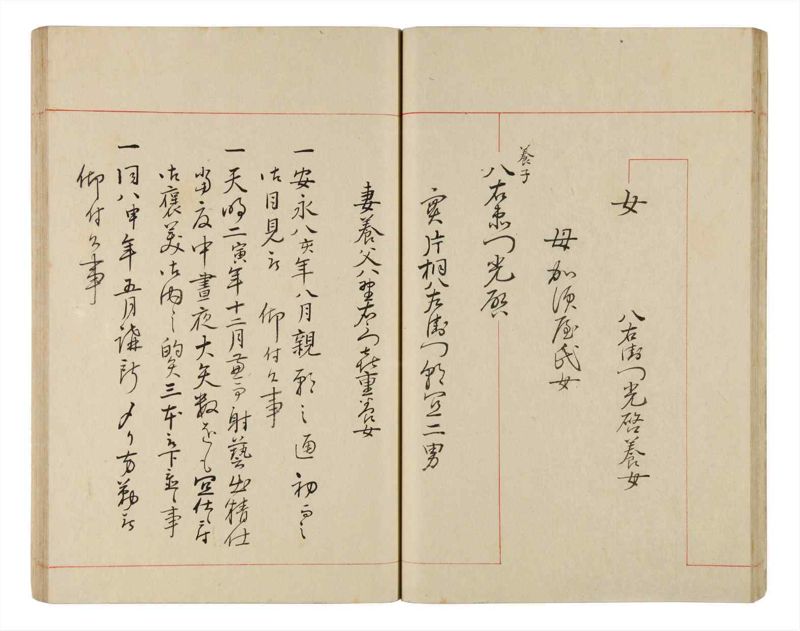 女
八右衛門光啓養女
母加須屋氏女
養子
八右衛門光啓
実片桐八左衛門宣二男
妻養父八野右衛門重養女
一安永八亥年八月親願之通初而之
御目見被 仰付候事
一天明二寅年十二月兼而射藝出精仕
当夜中晝夜大矢数をも宜仕候付
御褒美御内之的矢三本被下置候事
一同八申年五月講釈メり方勤被
仰付候事